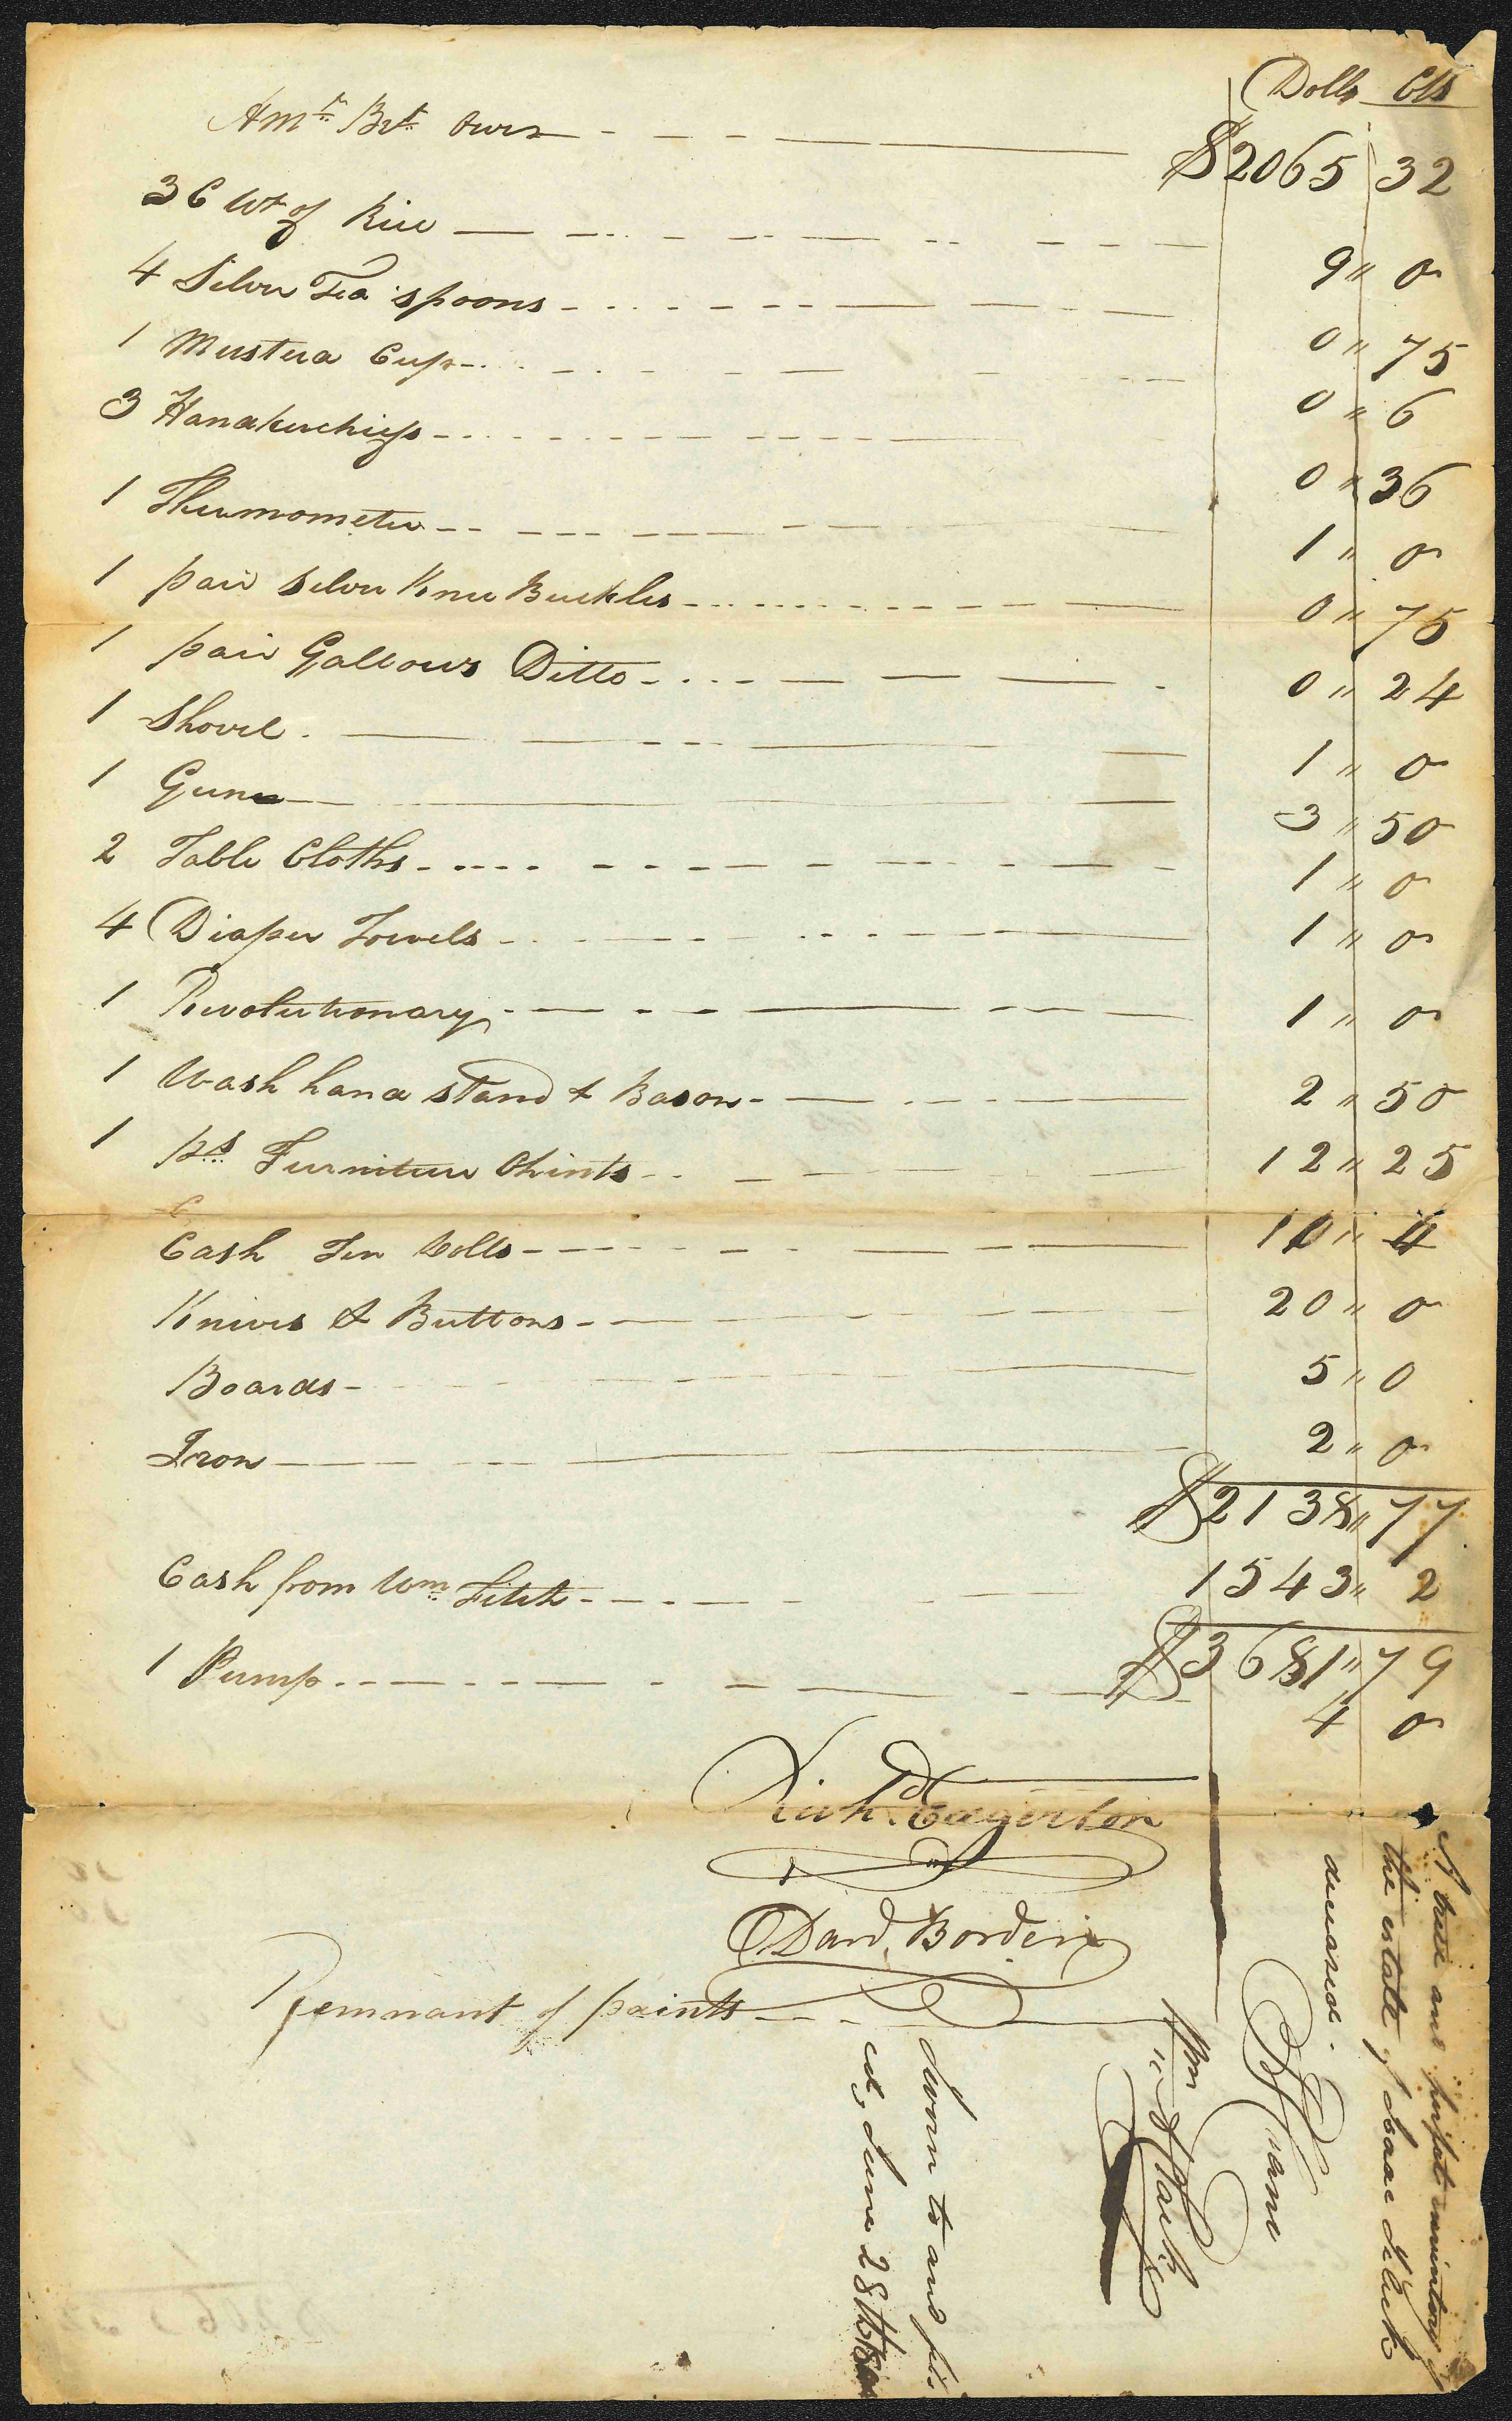 Dolls Cts
Amt. Brt. Over $2065 32
3 C Wt of Rice 9 " 0
4 Silver Tea spoons 0 " 75
1 Musterd Cup 0 " 6
3 Handkerchiefs 0 " 36
1 Thermometer 1 " 0
1 pair Silver Knee Buckles 0 " 75
1 pair Gallows Ditto 0 " 24
1 Shovel 1 " 0
1 Gun 3 " 50
2 Table Cloths 1 " 0
4 Diaper Towels 1 " 0
1 Revolutionary 1 " 0
1 Wash hand stand & Bason 2 " 50
1 ps Furniture Chints 12 " 25
Cash Ten Dolls 10 "
Knives & Buttons 20 " 0
Boards 5 " 0
Iron 2 " 0
$2138 " 77
Cash from Wm. Fitch 1543 " 2
$3681 " 79
1 Pump 4 0
Richd. Edgerton
Davd. Borden
Remnant of paints
A true and perfect inventory of
the estate of Isaac Slack
deceased.
Crane
Slack
Sworn to and
ed, June 28th